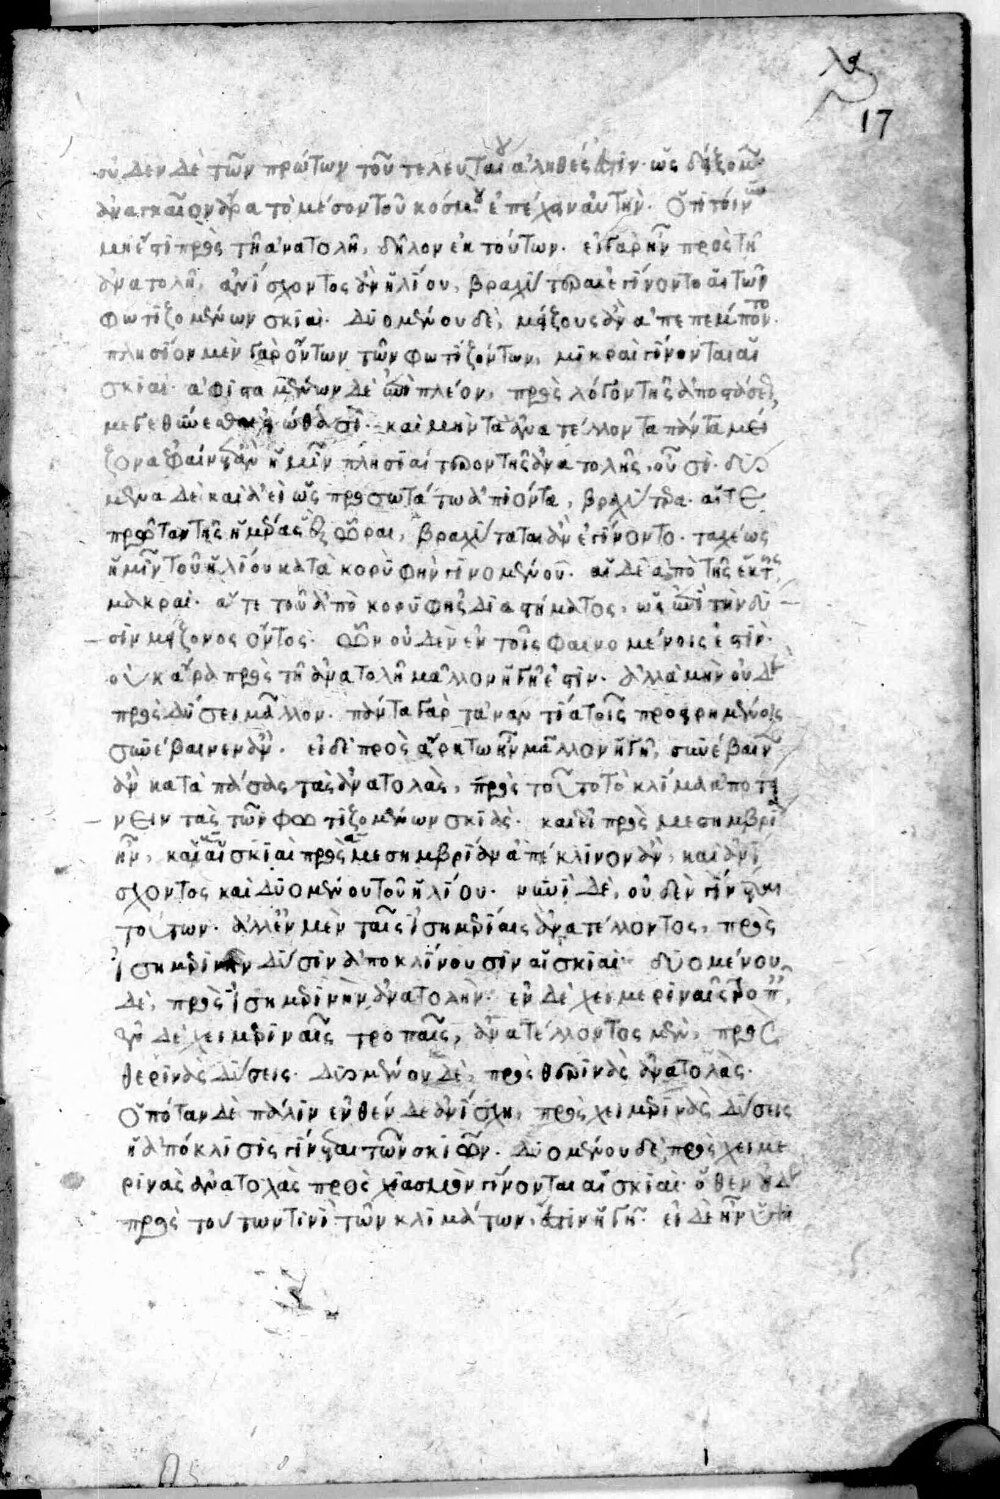 17
οὐδὲν δὲ τῶν πρώτων τοῦ τελευταίου ἀληθές ἐστιν. ὡς δείξομεν.
ἀναγκαῖον ἄρα τὸ μέσον τοῦ κόσμου ἐπέχειν αὐτήν. Ὅτι τοίνυν
μή ἐστι πρὸς τῇ ἀνατολῇ, δῆλον ἐκ τούτων. εἰ γὰρ ἦν πρὸς τῇ
ἀνατολῇ, ἀνίσχοντος ἂν ἡλίου, βραχύτεραι ἐγίνοντο αἱ τῶν
φωτιζομένων σκιαί. δυομένου δὲ, μείζους ἂν ἀπεπέμποντο.
πλησίον μὲν γὰρ ὄντων τῶν φωτιζόντων, μικραὶ γίνονται αἱ
σκιαί. ἀφισταμένων δὲ ἐπὶ πλέον, πρὸς λόγον τῆς ἀποστάσεως
καὶ μὴν τὰ ἀνατέλλοντα πάντα μεί
ζονα ἐφαίνετο ἂν ἡμῖν πλησιαίτερον τῆς ἀνατολῆς οὖσι. δυό
μενα δὲ καὶ ἀεὶ ὡς προσωτάτω ἀπιόντα, βραχύτερα. αἵ τε
πρῶται τῆς ἡμέρας ἓξ ὧραι, βραχύταται ἂν ἐγίνοντο. ταχέως
ἡμῖν τοῦ ἡλίου κατὰ κορυφὴν γινομένου. αἱ δὲ ἀπὸ τῆς ἕκτης,
μακραί. ἅτε τοῦ ἀπὸ κορυφῆς διαστήματος, ὡς ἐπὶ τὴν δύ
σιν μείζονος ὄντος. ὧν οὐδὲν ἐν τοῖς φαινομένοις ἐστίν.
οὐκ ἄρα πρὸς τῇ ἀνατολῇ μᾶλλον ἡ γῆ ἐστιν. ἀλλὰ μὴν οὐδὲ
πρὸς δύσει μᾶλλον. πάντα γὰρ τἀναντία τοῖς προειρημένοις
συνέβαινεν ἄν. εἰ δὲ πρὸς ἄρκτῳ ἦν μᾶλλον ἡ γῆ, συνέβαινεν
ἂν κατὰ πάσας τὰς ἀνατολὰς, πρὸς τοῦτο τὸ κλίμα ἀποτεί
νειν τὰς τῶν φωτιζομένων σκιάς. καὶ εἰ πρὸς μεσημβρίαν
ἦν, καὶ αἱ σκιαὶ πρὸς μεσημβρίαν ἀπέκλινον ἂν, καὶ ἀνί
σχοντος καὶ δυομένου τοῦ ἡλίου. νυνὶ δὲ, οὐδὲν γίνεται
τούτων. ἀλλ' ἐν μὲν ταῖς ἰσημερίαις ἀνατέλλοντος, πρὸς
ἰσημερινὴν δύσιν ἀποκλίνουσιν αἱ σκιαί. δυομένου
δὲ, πρὸς ἰσημερινὴν ἀνατολήν. ἐν δὲ χειμεριναῖς τροπ
ἐν δὲ χειμεριναῖς τροπαῖς, ἀνατέλλοντος μὲν, πρὸς
θερινὰς δύσεις. δυομένου δὲ, πρὸς θερινὰς ἀνατολάς.
Ὁπόταν δὲ πάλιν ἐνθένδε ἀνίσχῃ, πρὸς χειμερινὰς δύσεις
ἡ ἀπόκλισις γίνεται τῶν σκιῶν. δυομένου δὲ πρὸς χειμε
ρινὰς ἀνατολὰς πρὸς χιασμὸν γίνονται αἱ σκιαί. ὅθεν οὐδὲ
πρὸς τούτων τινὶ τῶν κλιμάτων, ἐστὶν ἡ γῆ. εἰ δὲ ἦν